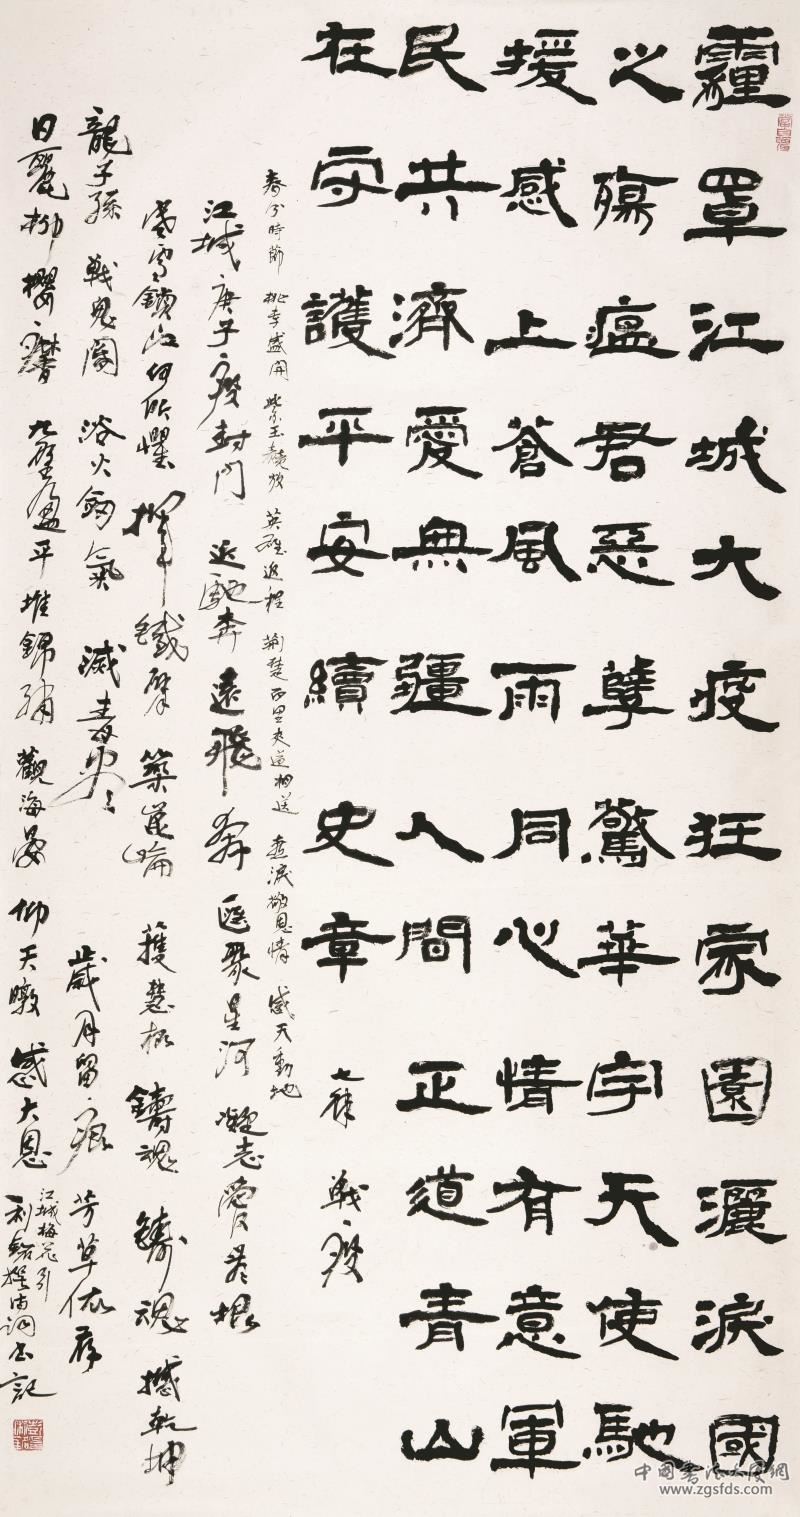 霾罩江城大疫狂家園灑淚國
之殤瘟君惡孽驚華宇天使馳
援感上蒼風雨同心情有意軍
民共濟愛無疆人間正道青山
在守護平安續史章
七律 戰疫
春分時節 桃李盛開 英雄返程 荊楚百里夾道相送 熱淚敬恩情 感天動地
江城庚子疫封門 近馳奔 遠飛奔 匯聚星河 凝志愛是根
寒雪鎖江何所懼 揮鐵臂 築崑崙 護慧根 鑄魂 鑄魂 撼乾坤
龍子孫 戰鬼閽 浴火劍氣 滅毒 歲月留痕 芳草依存
日麗柳櫻 九壁 平堆錦繡 觀海晏 仰天暾 感大恩
江城梅花引
利 撰 詩詞 書記
中國書法大展網
www.zgsfds.com